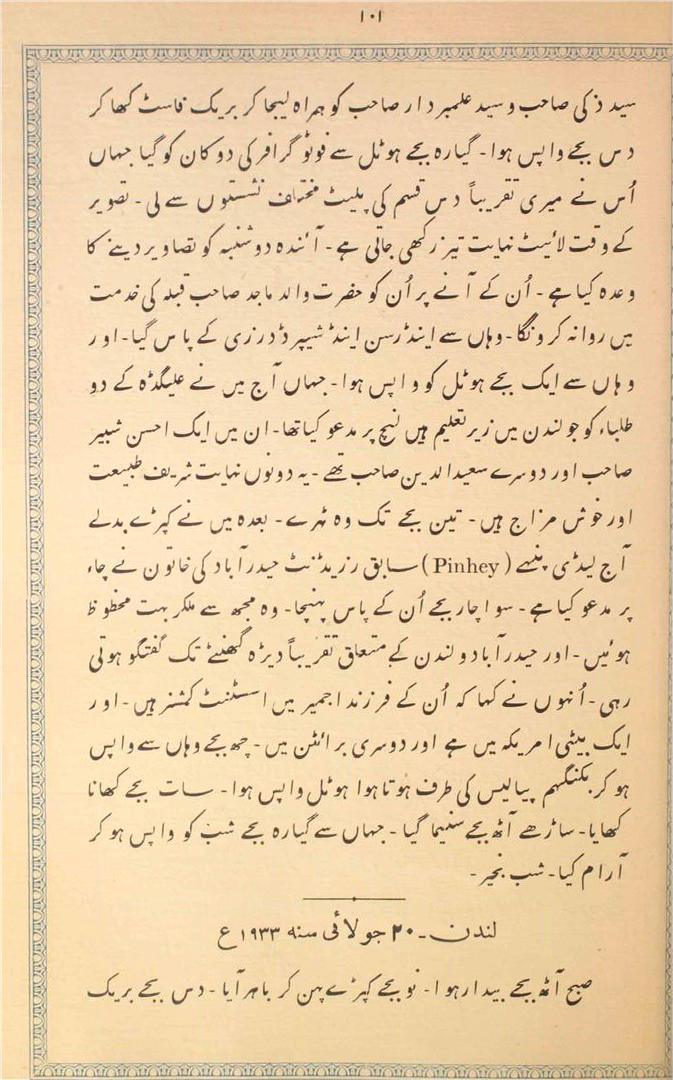 ۱۰۱
سید ذکی صاحب و سید علمبردار صاحب کو ہمراہ لیجا کر بریک فاسٹ کھا کر
دس بجے واپس ہوا۔ گیارہ بجے ہوٹل سے فوٹو گرافر کی دوکان کو گیا جہاں
اُس نے میری تقریباً دس قسم کی پلیٹ مختلف نشستوں سے لی۔ تصویر
کے وقت لائیٹ نہایت تیز رکھی جاتی ہے۔ آئندہ دوشنبہ کو تصاویر دینے کا
وعدہ کیا ہے۔ اُن کے آنے پر اُن کو حضرت والد ماجد صاحب قبلہ کی خدمت
میں روانہ کرونگا۔ وہاں سے اینڈرسن اینڈ شیپرڈ درزی کے پاس گیا۔ اور
وہاں سے ایک بجے ہوٹل کو واپس ہوا۔ جہاں آج میں نے علیگڈہ کے دو
طلباء کو جو لندن میں زیر تعلیم ہیں لنچ پر مدعو کیا تھا۔ ان میں ایک احسن شبیر
صاحب اور دوسرے سعید الدین صاحب تھے۔ یہ دونوں نہایت شریف طبیعت
اور خوش مزاج ہیں۔ تین بجے تک وہ ٹہرے۔ بعدہ میں نے کپڑے بدلے
آج لیڈی پنہے (Pinhey) سابق رزیڈنٹ حیدرآباد کی خاتون نے چاء
پر مدعو کیا ہے۔ سوا چار بجے اُن کے پاس پہنچا۔ وہ مجھ سے ملکر بہت محظوظ
ہوئیں۔ اور حیدرآباد و لندن کے متعلق تقریباً دیڑہ گھنٹے تک گفتگو ہوتی
رہی۔ اُنہوں نے کہا کہ اُن کے فرزند اجمیر میں اسسٹنٹ کمشنر ہیں۔ اور
ایک بیٹی امریکہ میں ہے اور دوسری برائٹن میں۔ چھ بجے وہاں سے واپس
ہو کر بکنگہم پیالیس کی طرف ہوتا ہوا ہوٹل واپس ہوا۔ سات بجے کھانا
کھایا۔ ساڑھے آٹھ بجے سنیما گیا۔ جہاں سے گیارہ بجے شب کو واپس ہو کر
آرام کیا۔ شب بخیر۔
لندن۔ ۲۰ جولائی سنہ ۱۹۳۳ ع
صبح آٹھ بجے بیدار ہوا۔ نو بجے کپڑے پہن کر باہر آیا۔ دس بجے بریک